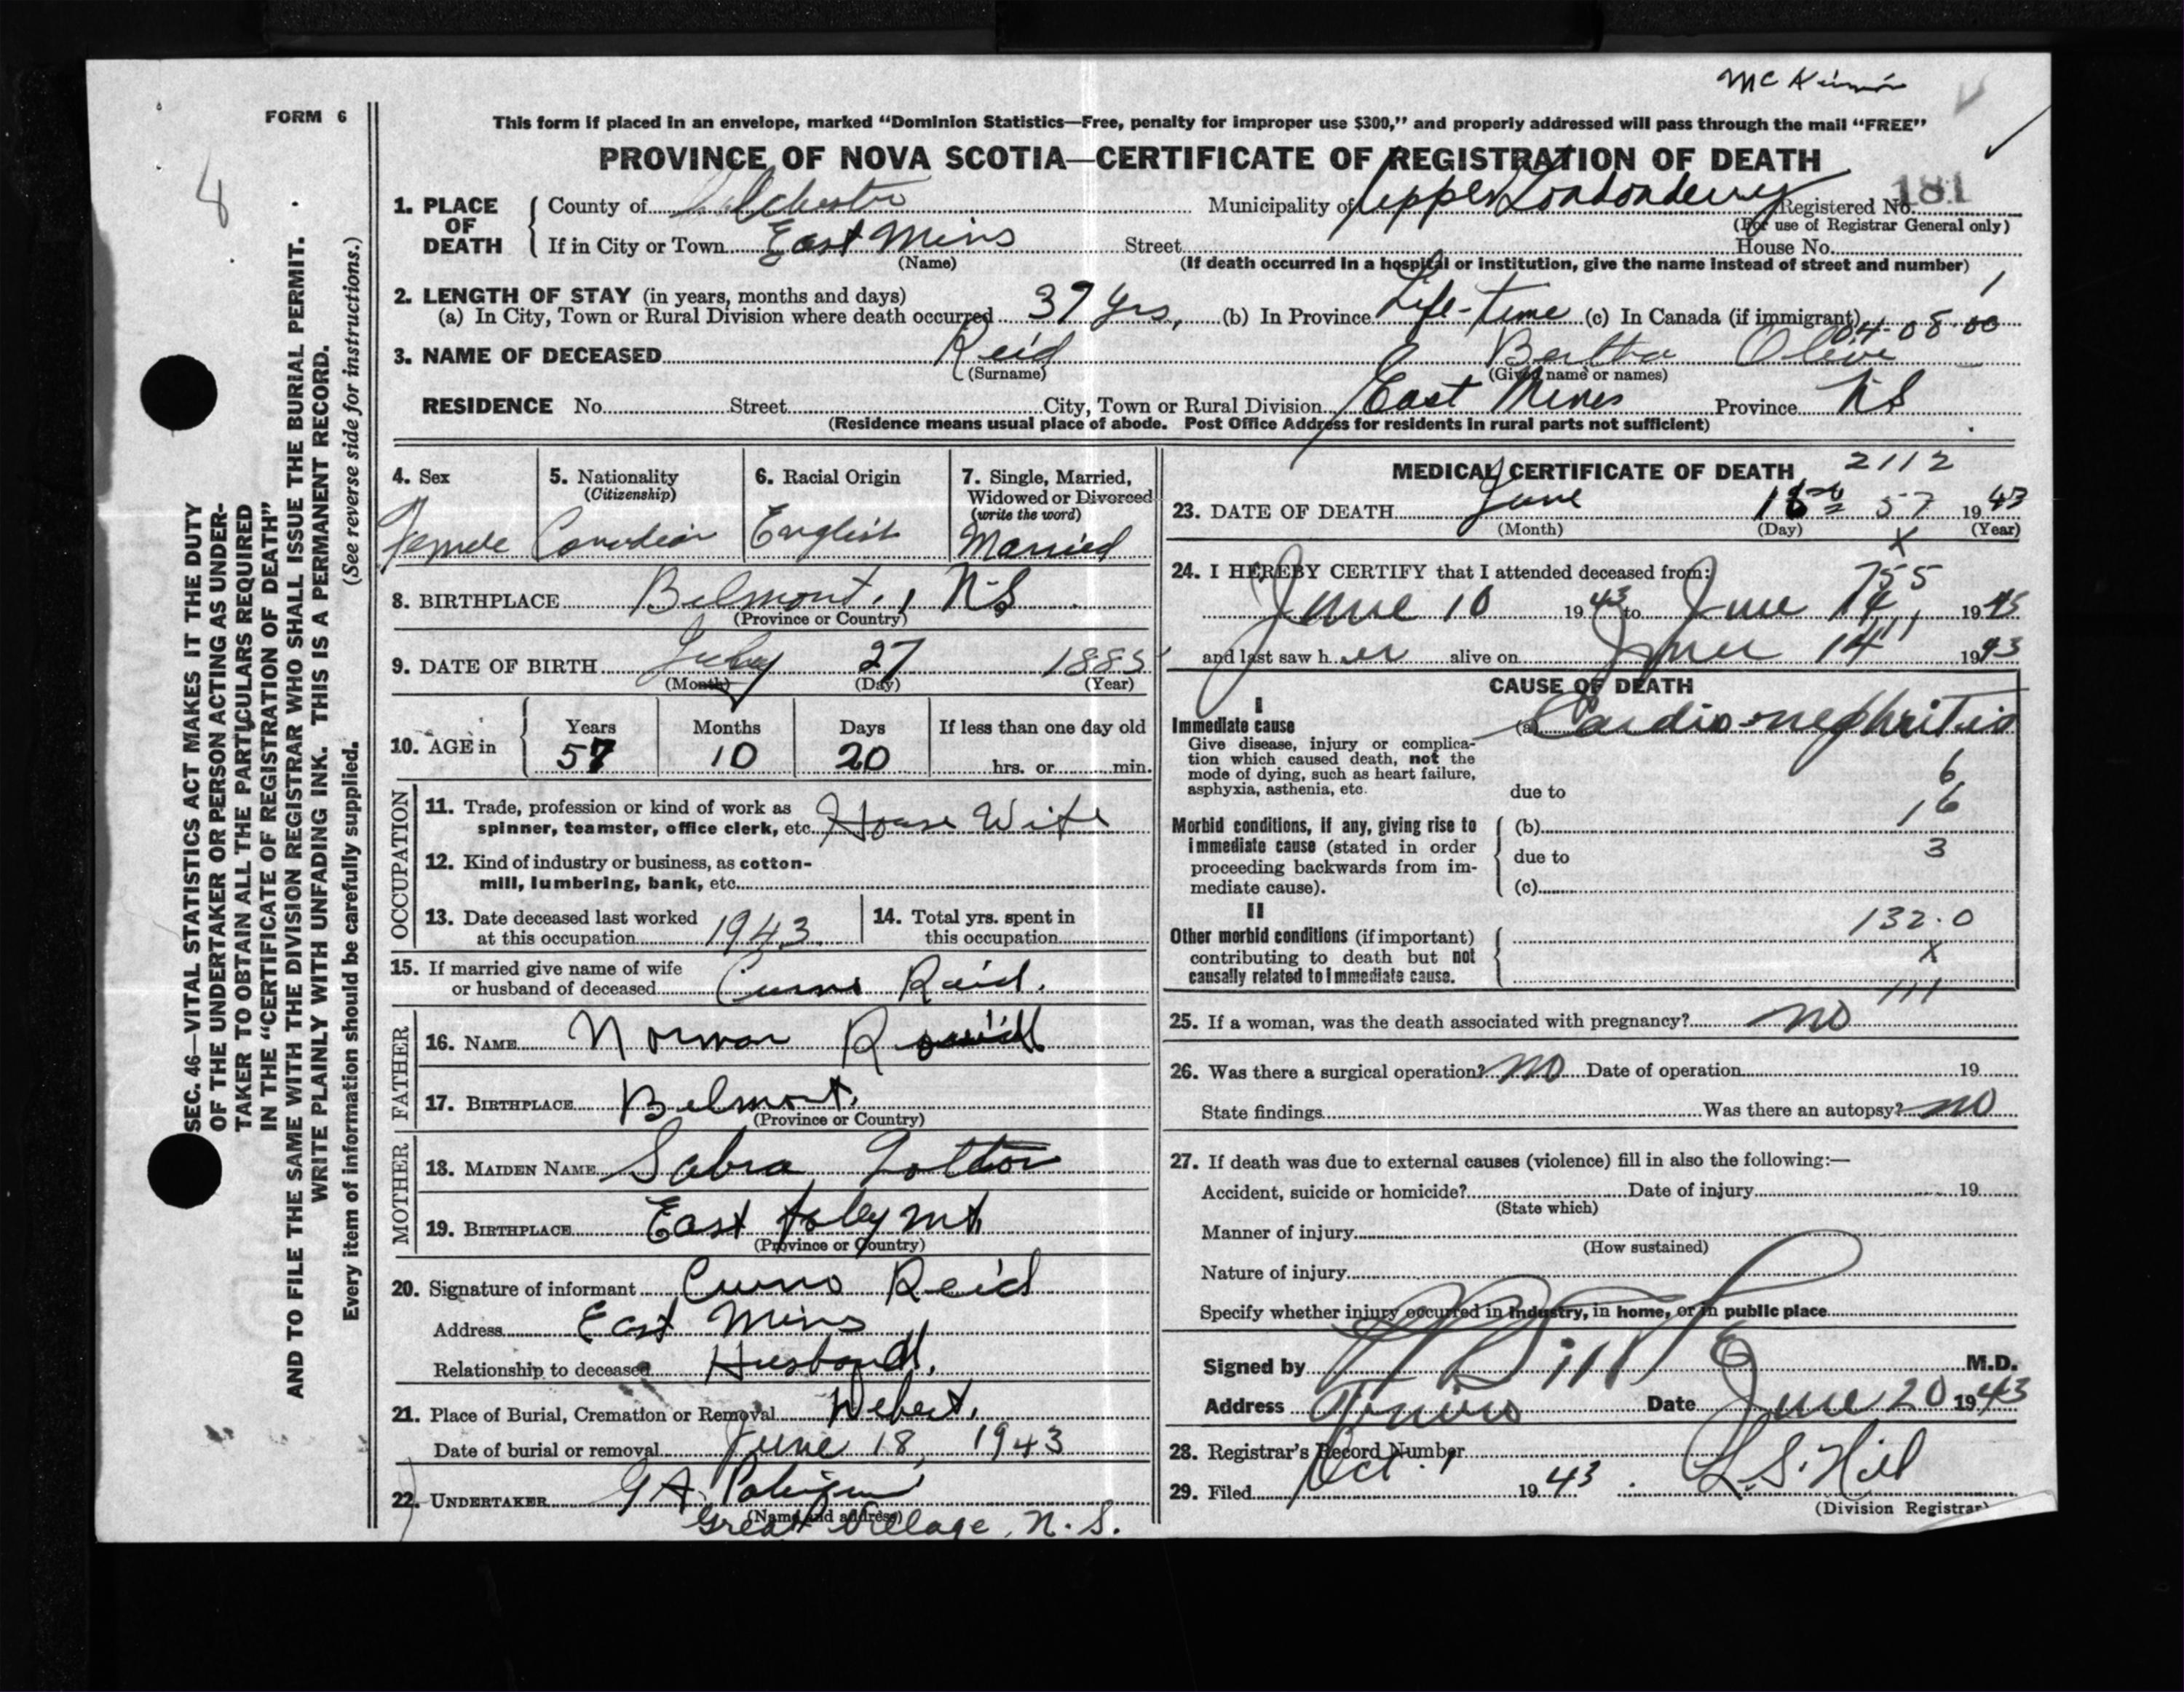 McKinnon
FORM 6
8
This form if placed in an envelope, marked “Dominion Statistics—Free, penalty for improper use $300,” and properly addressed will pass through the mail “FREE”
PROVINCE OF NOVA SCOTIA—CERTIFICATE OF REGISTRATION OF DEATH
181
1. PLACE OF DEATH
County of Colchester Municipality of Upper Londonderry Registered No.
(For use of Registrar General only)
If in City or Town East Mins Street House No.
(Name) (If death occurred in a hospital or institution, give the name instead of street and number)
2. LENGTH OF STAY (in years, months and days)
(a) In City, Town or Rural Division where death occurred 37 yrs, (b) In Province Life-time (c) In Canada (if immigrant)
04-08-00
3. NAME OF DECEASED Reid Bertha Olive
(Surname) (Given name or names)
RESIDENCE No. Street City, Town or Rural Division East Mines Province NS
(Residence means usual place of abode. Post Office Address for residents in rural parts not sufficient)
SEC. 46—VITAL STATISTICS ACT MAKES IT THE DUTY
OF THE UNDERTAKER OR PERSON ACTING AS UNDER-
TAKER TO OBTAIN ALL THE PARTICULARS REQUIRED
IN THE “CERTIFICATE OF REGISTRATION OF DEATH”
AND TO FILE THE SAME WITH THE DIVISION REGISTRAR WHO SHALL ISSUE THE BURIAL PERMIT.
WRITE PLAINLY WITH UNFADING INK. THIS IS A PERMANENT RECORD.
Every item of information should be carefully supplied. (See reverse side for instructions.)
4. Sex 5. Nationality (Citizenship) 6. Racial Origin 7. Single, Married, Widowed or Divorced (write the word)
Female Canadian English Married
8. BIRTHPLACE Belmont, NS
(Province or Country)
9. DATE OF BIRTH July 27 1885
(Month) (Day) (Year)
10. AGE in Years Months Days If less than one day old
57 10 20 hrs. or min.
OCCUPATION
11. Trade, profession or kind of work as
spinner, teamster, office clerk, etc. House Wife
12. Kind of industry or business, as cotton-
mill, lumbering, bank, etc.
13. Date deceased last worked
at this occupation 1943
14. Total yrs. spent in
this occupation
15. If married give name of wife
or husband of deceased Reid.
FATHER
16. NAME Norman
17. BIRTHPLACE Belmont.
(Province or Country)
MOTHER
18. MAIDEN NAME Sabra
19. BIRTHPLACE East foley Mt.
(Province or Country)
20. Signature of informant Reid
Address East Mins
Relationship to deceased Husband.
21. Place of Burial, Cremation or Removal Debert.
Date of burial or removal June 18, 1943
22. UNDERTAKER G A
(Name and address)
Great Village, N.S.
MEDICAL CERTIFICATE OF DEATH 2112
23. DATE OF DEATH June 57 1943
(Month) (Day) (Year)
X
24. I HEREBY CERTIFY that I attended deceased from:
755
June 10 1943 to June 14, 1943
and last saw her alive on June 14 1943
CAUSE OF DEATH
I
Immediate cause (a) Cardio-nephritis
Give disease, injury or complica-
tion which caused death, not the
mode of dying, such as heart failure,
asphyxia, asthenia, etc.
6
due to
16
Morbid conditions, if any, giving rise to (b)
immediate cause (stated in order
proceeding backwards from im-
mediate cause).
due to 3
(c)
II
132.0
Other morbid conditions (if important)
contributing to death but not
causally related to immediate cause.
X
111
25. If a woman, was the death associated with pregnancy? no
26. Was there a surgical operation? no Date of operation 19
State findings Was there an autopsy? no
27. If death was due to external causes (violence) fill in also the following:—
Accident, suicide or homicide? Date of injury 19
(State which)
Manner of injury
(How sustained)
Nature of injury
Specify whether injury occurred in industry, in home, or in public place
Signed by M.D.
Address Truro Date June 20 1943
28. Registrar's Record Number
29. Filed Oct. 1 1943. L.S. Hill
(Division Registrar)